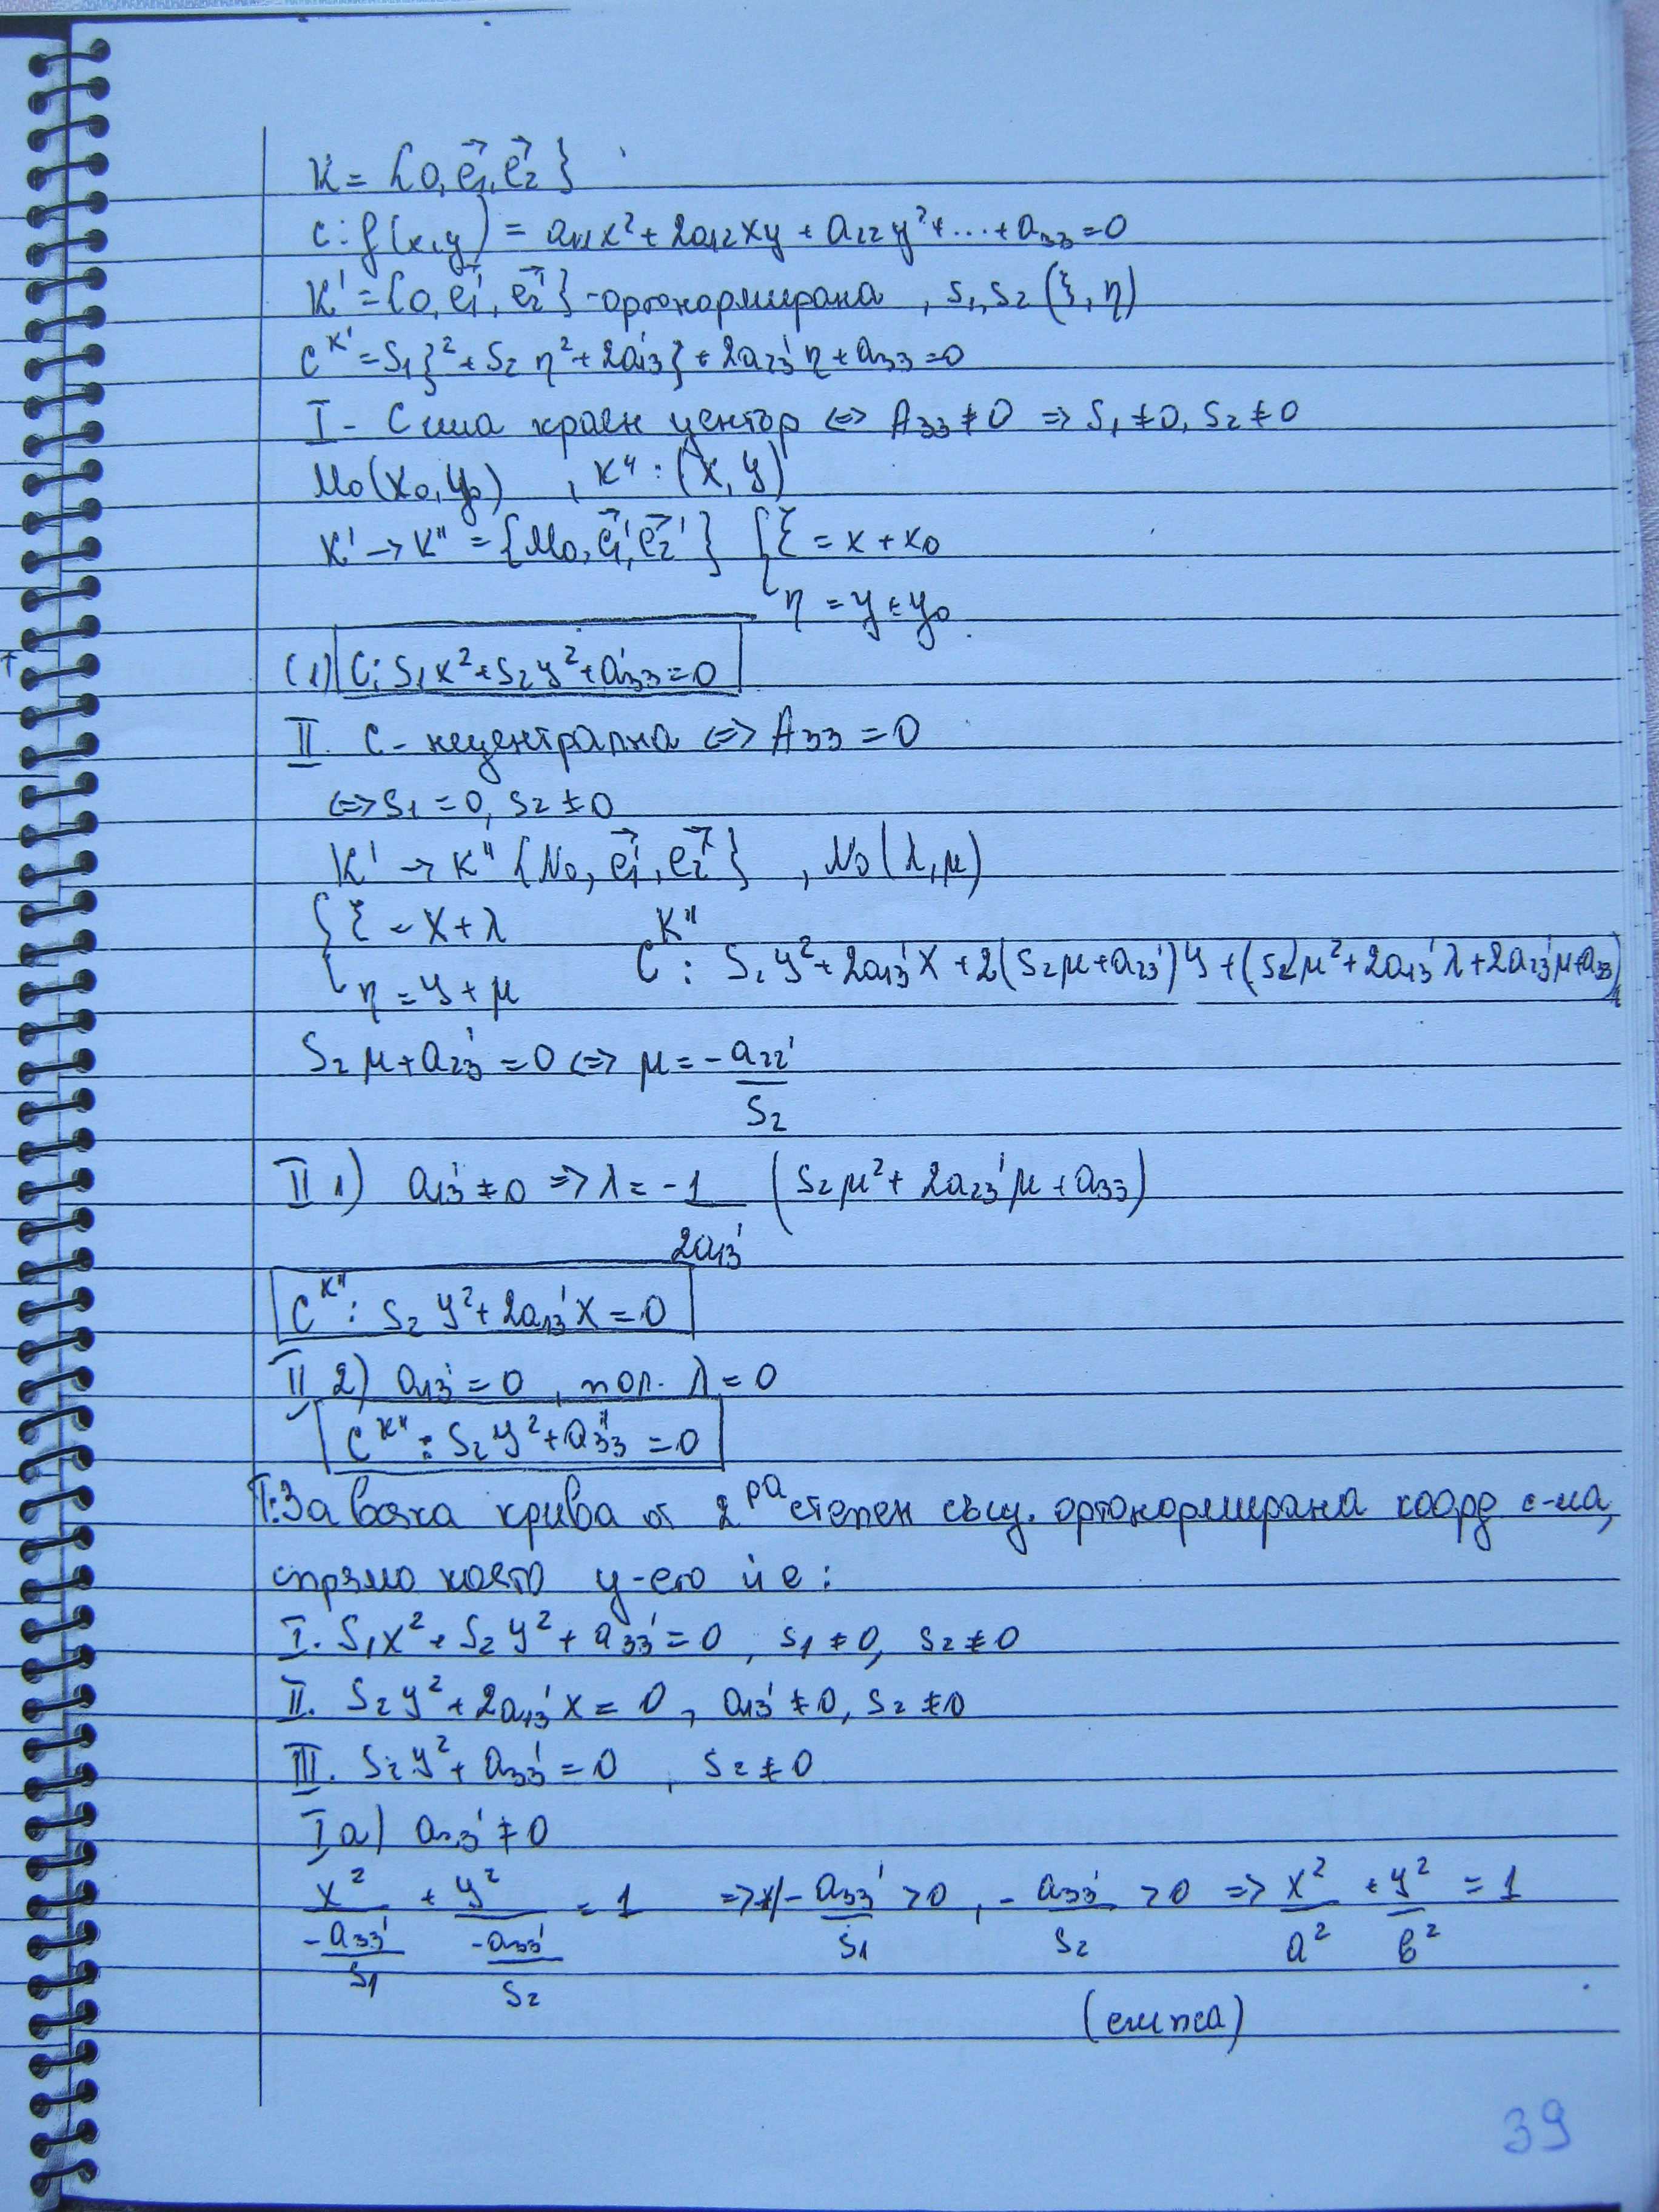 K = {0, e₁→, e₂→}
c: f(x,y) = a₁₁x² + 2a₁₂xy + a₂₂y² + ... + a₃₃ = 0
K' = {0, e₁'→, e₂'→} - ортонормирана , s₁, s₂ (ξ, η)
C^K' = S₁ξ² + S₂η² + 2a₁₃'ξ + 2a₂₃'η + a₃₃ = 0
I - C има краен център ⇔ A₃₃ ≠ 0 ⇒ S₁ ≠ 0, S₂ ≠ 0
M₀(x₀, y₀) , K'' : (x, y)
K' → K'' = {M₀, e₁'→, e₂'→} { ξ = x + x₀
η = y + y₀
(1) C: S₁x² + S₂y² + a₃₃' = 0
II. C - нецентрална ⇔ A₃₃ = 0
⇔ S₁ = 0, S₂ ≠ 0
K' → K'' {N₀, e₁'→, e₂'→} , N₀(λ, μ)
{ ξ = x + λ
η = y + μ C^K'' : S₂y² + 2a₁₃'x + 2(S₂μ + a₂₃')y + (S₂μ² + 2a₁₃'λ + 2a₂₃'μ + a₃₃)
S₂μ + a₂₃' = 0 ⇔ μ = - a₂₂' / S₂
II 1) a₁₃' ≠ 0 ⇒ λ = -1 / 2a₁₃' (S₂μ² + 2a₂₃'μ + a₃₃)
C^K'' : S₂y² + 2a₁₃'x = 0
II 2) a₁₃' = 0 , пол. λ = 0
C^K'' : S₂y² + a₃₃'' = 0
T: За всяка крива от 2ра степен същ. ортонормирана коорд с-ма,
спрямо която у-ето ѝ е:
I. S₁x² + S₂y² + a₃₃' = 0 , S₁ ≠ 0, S₂ ≠ 0
II. S₂y² + 2a₁₃'x = 0 , a₁₃' ≠ 0, S₂ ≠ 0
III. S₂y² + a₃₃' = 0 , S₂ ≠ 0
I, a) a₃₃' ≠ 0
x² / (-a₃₃'/S₁) + y² / (-a₃₃'/S₂) = 1 ⇒ - a₃₃'/S₁ > 0 , - a₃₃'/S₂ > 0 ⇒ x²/a² + y²/b² = 1
(елипса)
39